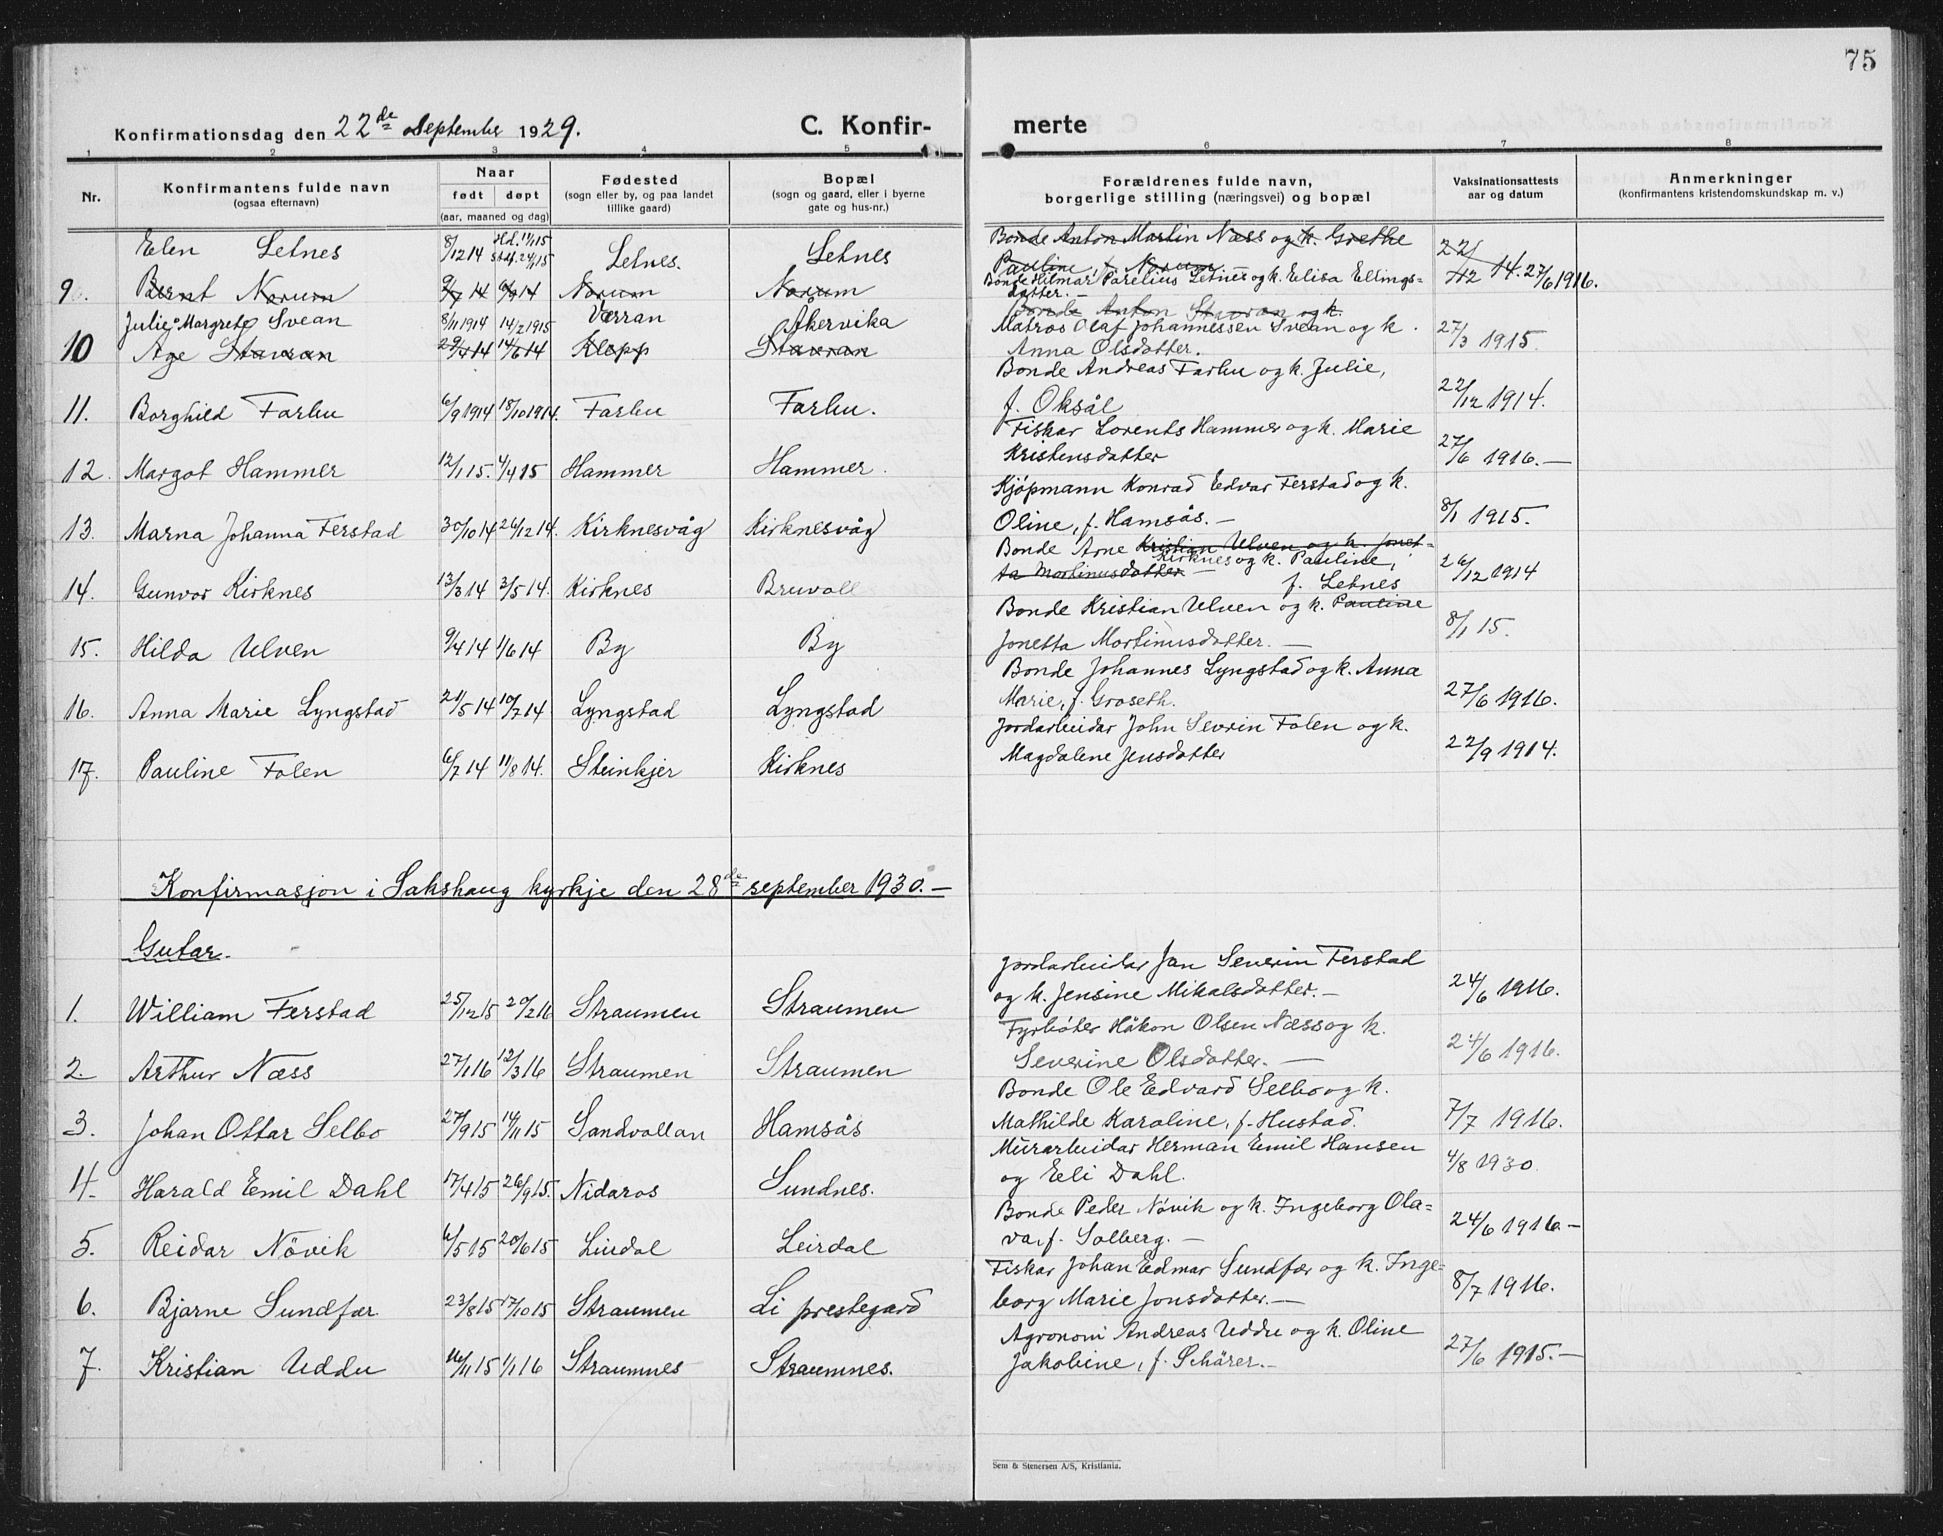 75
Konfirmationsdag den 22de September 1929. C. Konfir-merte
1 2 3 4 5 6 7 8
Nr. Konfirmantens fulde navn (ogsaa efternavn) Naar født døpt (aar, maaned og dag) Fødested (sogn eller by, og paa landet tillike gaard) Bopæl (sogn og gaard, eller i byerne gate og hus-nr.) Forældrenes fulde navn, borgerlige stilling (næringsvei) og bopæl Vaksinationsattests aar og datum Anmerkninger (konfirmantens kristendomskundskap m. v.)
Elen Letnes 8/12 14 Hd. 11/1 15 Letnes. Letnes Bonde Anton Martin Næss og k. Grethe
Pauline, f. Norum 22/12 14. 27/6 1916.
9. Bernt Norum 9/7 14 6/9 14 Norum Norum Bonde Hilmar Parelius Letnes og k. Elisa Ellings=
datter. -
Julie Margrete Svean 8/11 1914 14/2 1915 Verran Åkervika Bonde Anton Stavran og k.
Matros Olaf Johannessen Svean og k. 27/3 1915.
10 Age Stavran 29/4 14 14/6 14 Klepp Stavran Anna Olsdatter.
Bonde Andreas Farbu og k. Julie,
11. Borghild Farbu 6/9 1914 18/10 1914. Farbu Farbu. f. Oksål 22/12 1914.
Fiskar Lorents Hammer og k. Marie
12. Margot Hammer 12/1 15. 4/4 15 Hammer Hammer. Kristensdatter 27/6 1916. -
Kjöpmann Konrad Edvar Ferstad og k.
13. Marna Johanna Ferstad 30/10 14 26/12 14. Kirknesvåg Kirknesvåg Oline, f. Hamsås. - 8/1 1915.
Bonde Arne Kristian Ulven og k. Jonet=
ta Mortinusdatter - Kirknes og k. Pauline,
14. Gunvor Kirknes 13/3 14 3/5 14. Kirknes Bruvoll f. Letnes 26/12 1914
Bonde Kristian Ulven og k. Pauline
15. Hilda Ulven 9/4 14 1/6 14 By By Jonetta Mortinusdatter. - 8/1 15.
Bonde Johannes Lyngstad og k. Anna
16. Anna Marie Lyngstad 21/5 14 10/7 14 Lyngstad Lyngstad Marie, f. Groseth. 27/6 1916.
Jordarbeidar John Sevrin Folen og k.
17. Pauline Folen 6/7 14 11/8 14. Steinkjer Kirknes Magdalene Jensdatter 22/9 1914.
Konfirmasjon i Sakshaug kyrkje den 28de september 1930. -
Gutar.
Jordarbeidar Jan Severin Ferstad
1. William Ferstad 25/12 15 20/2 16 Straumen Straumen og k. Jensine Mikalsdatter. - 24/6 1916.
Fyrbøter Håkon Olsen Næss og k.
2. Arthur Næss 27/1 16 12/3 16 Straumen Straumen Severine Olsdatter. - 24/6 1916.
Bonde Ole Edvard Selbo og k.
3. Johan Ottar Selbo 27/9 15 14/11 15 Sandvollan Hamsås Mathilde Karoline, f. Hustad. 7/7 1916.
Murarbeidar Herman Emil Hansen
4. Harald Emil Dahl 17/4 15 26/9 15. Nidaros Sundnes. og Eli Dahl. 4/8 1930
Bonde Peder Növik og k. Ingeborg Ola=
5. Reidar Növik 6/5 15 20/6 15 Lindal Leirdal va, f. Solberg. - 24/6 1916 -
Fiskar Johan Edmar Sundfær og k. Inge=
6. Bjarne Sundfær 23/8 15 17/10 15 Straumen Li prestegard borg Marie Jonsdatter. - 8/7 1916.
Agronom Andreas Uddu og k. Oline
7. Kristian Uddu 16/11 15 1/1 16 Straumnes Straumnes. Jakobine, f. Schärer. - 27/6 1915. -
Sem & Stenersen A/S, Kristiania.